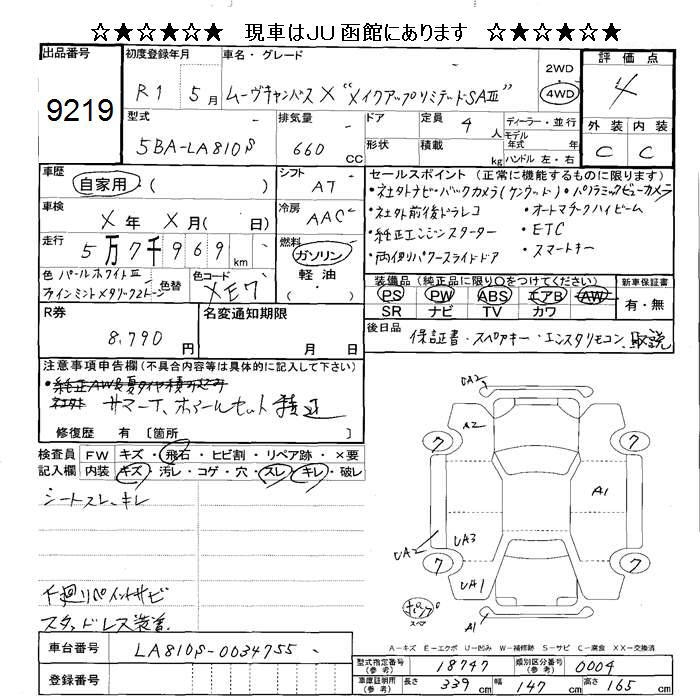 ☆★☆★☆★ 現車はJU函館にあります ☆★☆★☆★
出品番号
9219
初度登録年月
R1 5月
車名・グレード
ムーヴキャンバス X "メイクアップリミテッドSAⅢ"
2WD
4WD
評価点
4
外装 内装
C C
型式
5BA-LA810S
排気量
660 CC
ドア
形状
定員 4人
積載 kg
ディーラー・並行
モデル年式 年式
ハンドル 左・右
車歴
自家用・( )
シフト
AT
セールスポイント(正常に機能するものに限ります)
・社外ナビ・バックカメラ(ケンウッド)・パノラミックビューカメラ
・社外前後ドラレコ ・オートマチックハイビーム
・純正エンジンスターター ・ETC
・両側パワースライドドア ・スマートキー
車検
X年 X月( 日)
冷房
AAC
走行
5万7千969km
燃料
ガソリン
軽油
・( )
色 パールホワイトⅢ
ファインミントメタリック2トーン
色替
色コード
XE7
装備品(純正品に限り○をつけてください)
PS PW ABS エアB AW
SR ナビ TV カワ
新車保証書
有・無
R券
8,790円
名変通知期限
月 日
後日品
保証書・スペアキー・エンスタリモコン、取説
注意事項申告欄(不具合内容等は具体的に記入して下さい)
・純正AW&夏タイヤ積み込み
社外 サマーT、ホイールセット積込
修復歴 有〔箇所 〕
検査員記入欄
FW キズ・飛石・ヒビ割・リペア跡・×要
内装 キズ・汚レ・コゲ・穴・スレ・キレ・破レ
シートスレ、キレ
下廻リペイントサビ
スタッドレス装着
UA2
A2
7
7
A1
UA2
UA3
7
7
UA1
パンク
スペア
A1
A-キズ E-エクボ U-凹み W-補修跡 S-サビ C-腐食 XX-交換済
車台番号
LA810S-0034755
登録番号
型式指定番号(参考) 18747
類別区分番号(参考) 0004
車庫証明用(参考) 長さ 339cm 幅 147cm 高さ 165cm